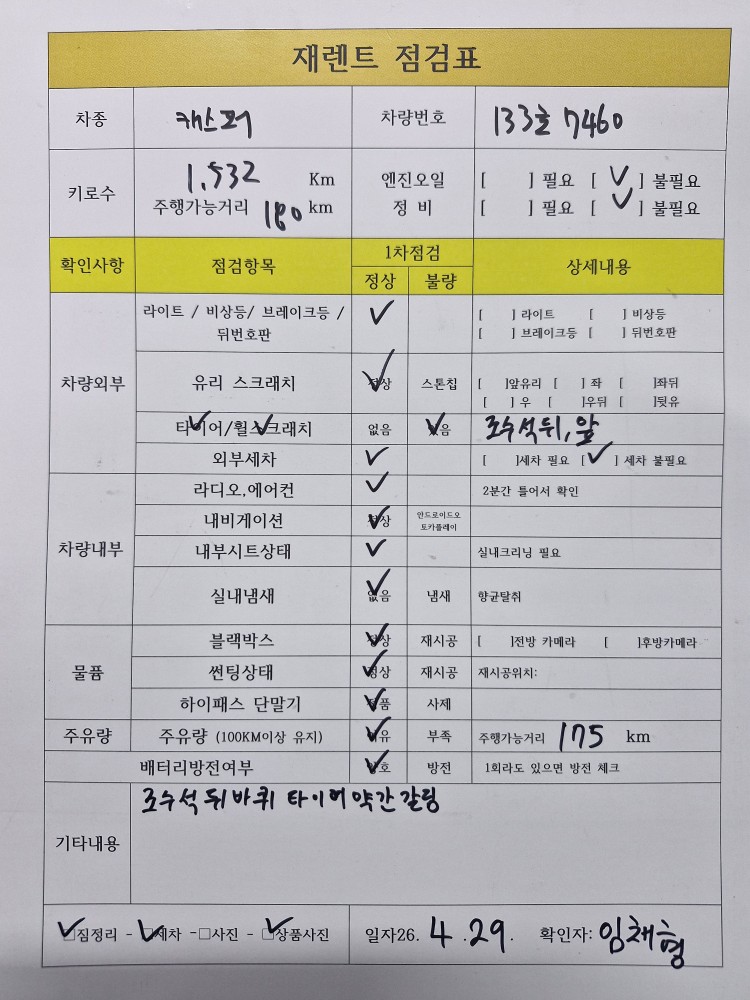 재렌트 점검표
차종 캐스퍼 차량번호 133호 7460
키로수 1,532 Km 엔진오일 [ ] 필요 [ ✓ ] 불필요
주행가능거리 180 km 정 비 [ ] 필요 [ ✓ ] 불필요
확인사항 점검항목 1차점검 상세내용
정상 불량
차량외부
라이트 / 비상등/ 브레이크등 / ✓ [ ] 라이트 [ ] 비상등
뒤번호판 [ ] 브레이크등 [ ] 뒤번호판
유리 스크래치 정상 ✓ 스톤칩 [ ]앞유리 [ ] 좌 [ ]좌뒤
[ ] 우 [ ]우뒤 [ ]뒷유
타이어/휠스크래치 ✓ ✓ 없음 있음 ✓ 조수석뒤, 앞
외부세차 ✓ [ ]세차 필요 [ ✓ ] 세차 불필요
차량내부
라디오,에어컨 ✓ 2분간 틀어서 확인
내비게이션 정상 ✓ 안드로이드오
토카플레이
내부시트상태 ✓ 실내크리닝 필요
실내냄새 없음 ✓ 냄새 향균탈취
물품
블랙박스 정상 ✓ 재시공 [ ]전방 카메라 [ ]후방카메라
썬팅상태 정상 ✓ 재시공 재시공위치:
하이패스 단말기 정품 ✓ 사제
주유량 주유량 (100KM이상 유지) ✓ 부족 주행가능거리 175 km
배터리방전여부 양호 ✓ 방전 1회라도 있으면 방전 체크
기타내용 조수석 뒤 바퀴 타이어 약간 갈림
✓ □짐정리 - ✓ □세차 -□사진 - ✓ □상품사진 일자26. 4 .29. 확인자: 임채형